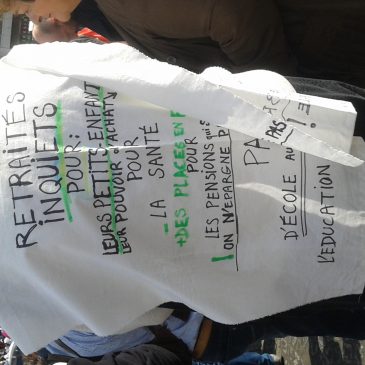 RETRAITÉS
INQUIETS
POUR:
LEURS PETITS ENFANT
LEUR POUVOIR D'ACHATS
POUR
- LA SANTÉ
+DES PLACES EN F
POUR
LES PENSIONS qui
! ON N'ÉPARGNE P
PA
PAS
D'ÉCOLE AU ! =
L'EDUCATION